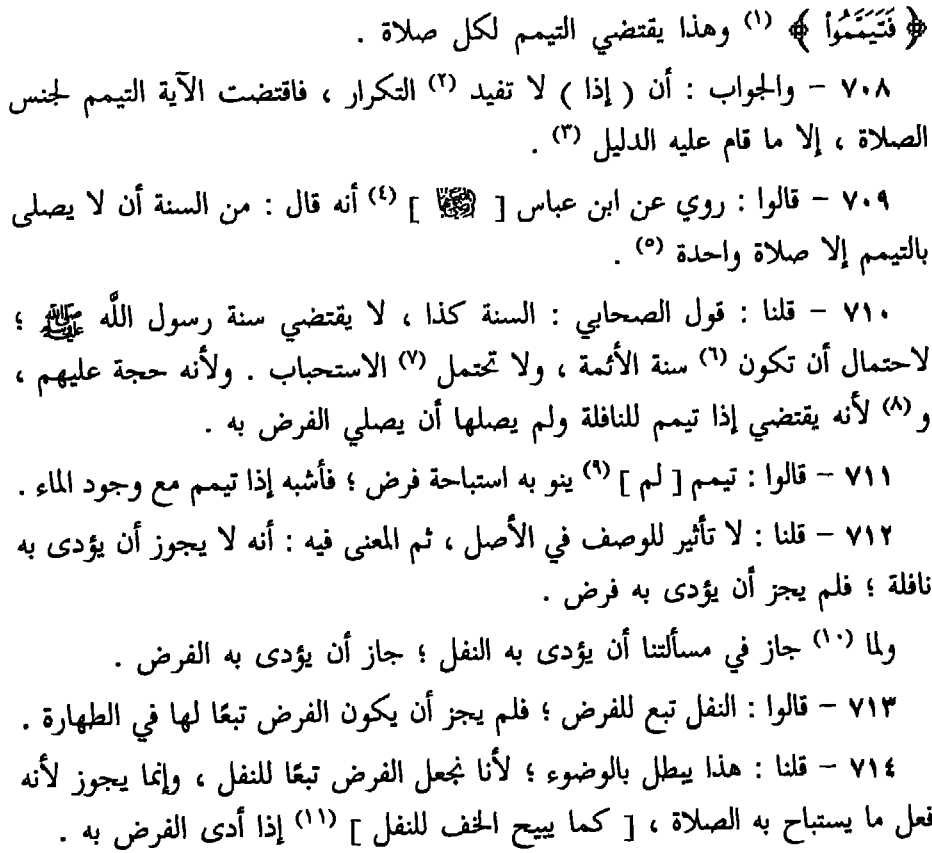 ﴿ فَتَيَمَّمُوا ﴾ (١) وهذا يقتضي التيمم لكل صلاة .
٧٠٨ – والجواب : أن ( إذا ) لا تفيد (٢) التكرار ، فاقتضت الآية التيمم لجنس
الصلاة ، إلا ما قام عليه الدليل (٣) .
٧٠٩ – قالوا : روي عن ابن عباس [ ] (٤) أنه قال : من السنة أن لا يصلى
بالتيمم إلا صلاة واحدة (٥) .
٧١٠ – قلنا : قول الصحابي : السنة كذا ، لا يقتضي سنة رسول اللَّه ﷺ ؛
لاحتمال أن تكون (٦) سنة الأئمة ، ولا تحتمل (٧) الاستحباب . ولأنه حجة عليهم ،
و (٨) لأنه يقتضي إذا تيمم للنافلة ولم يصلها أن يصلي الفرض به .
٧١١ – قالوا : تيمم [ لم ] (٩) ينو به استباحة فرض ؛ فأشبه إذا تيمم مع وجود الماء .
٧١٢ – قلنا : لا تأثير للوصف في الأصل ، ثم المعنى فيه : أنه لا يجوز أن يؤدى به
نافلة ؛ فلم يجز أن يؤدى به فرض .
ولما (١٠) جاز في مسألتنا أن يؤدى به النفل ؛ جاز أن يؤدى به الفرض .
٧١٣ – قالوا : النفل تبع للفرض ؛ فلم يجز أن يكون الفرض تبعًا لها في الطهارة .
٧١٤ – قلنا : هذا يبطل بالوضوء ؛ لأنا نجعل الفرض تبعًا للنفل ، وإنما يجوز لأنه
فعل ما يستباح به الصلاة ، [ كما يبيح الخف للنفل ] (١١) إذا أدى الفرض به .